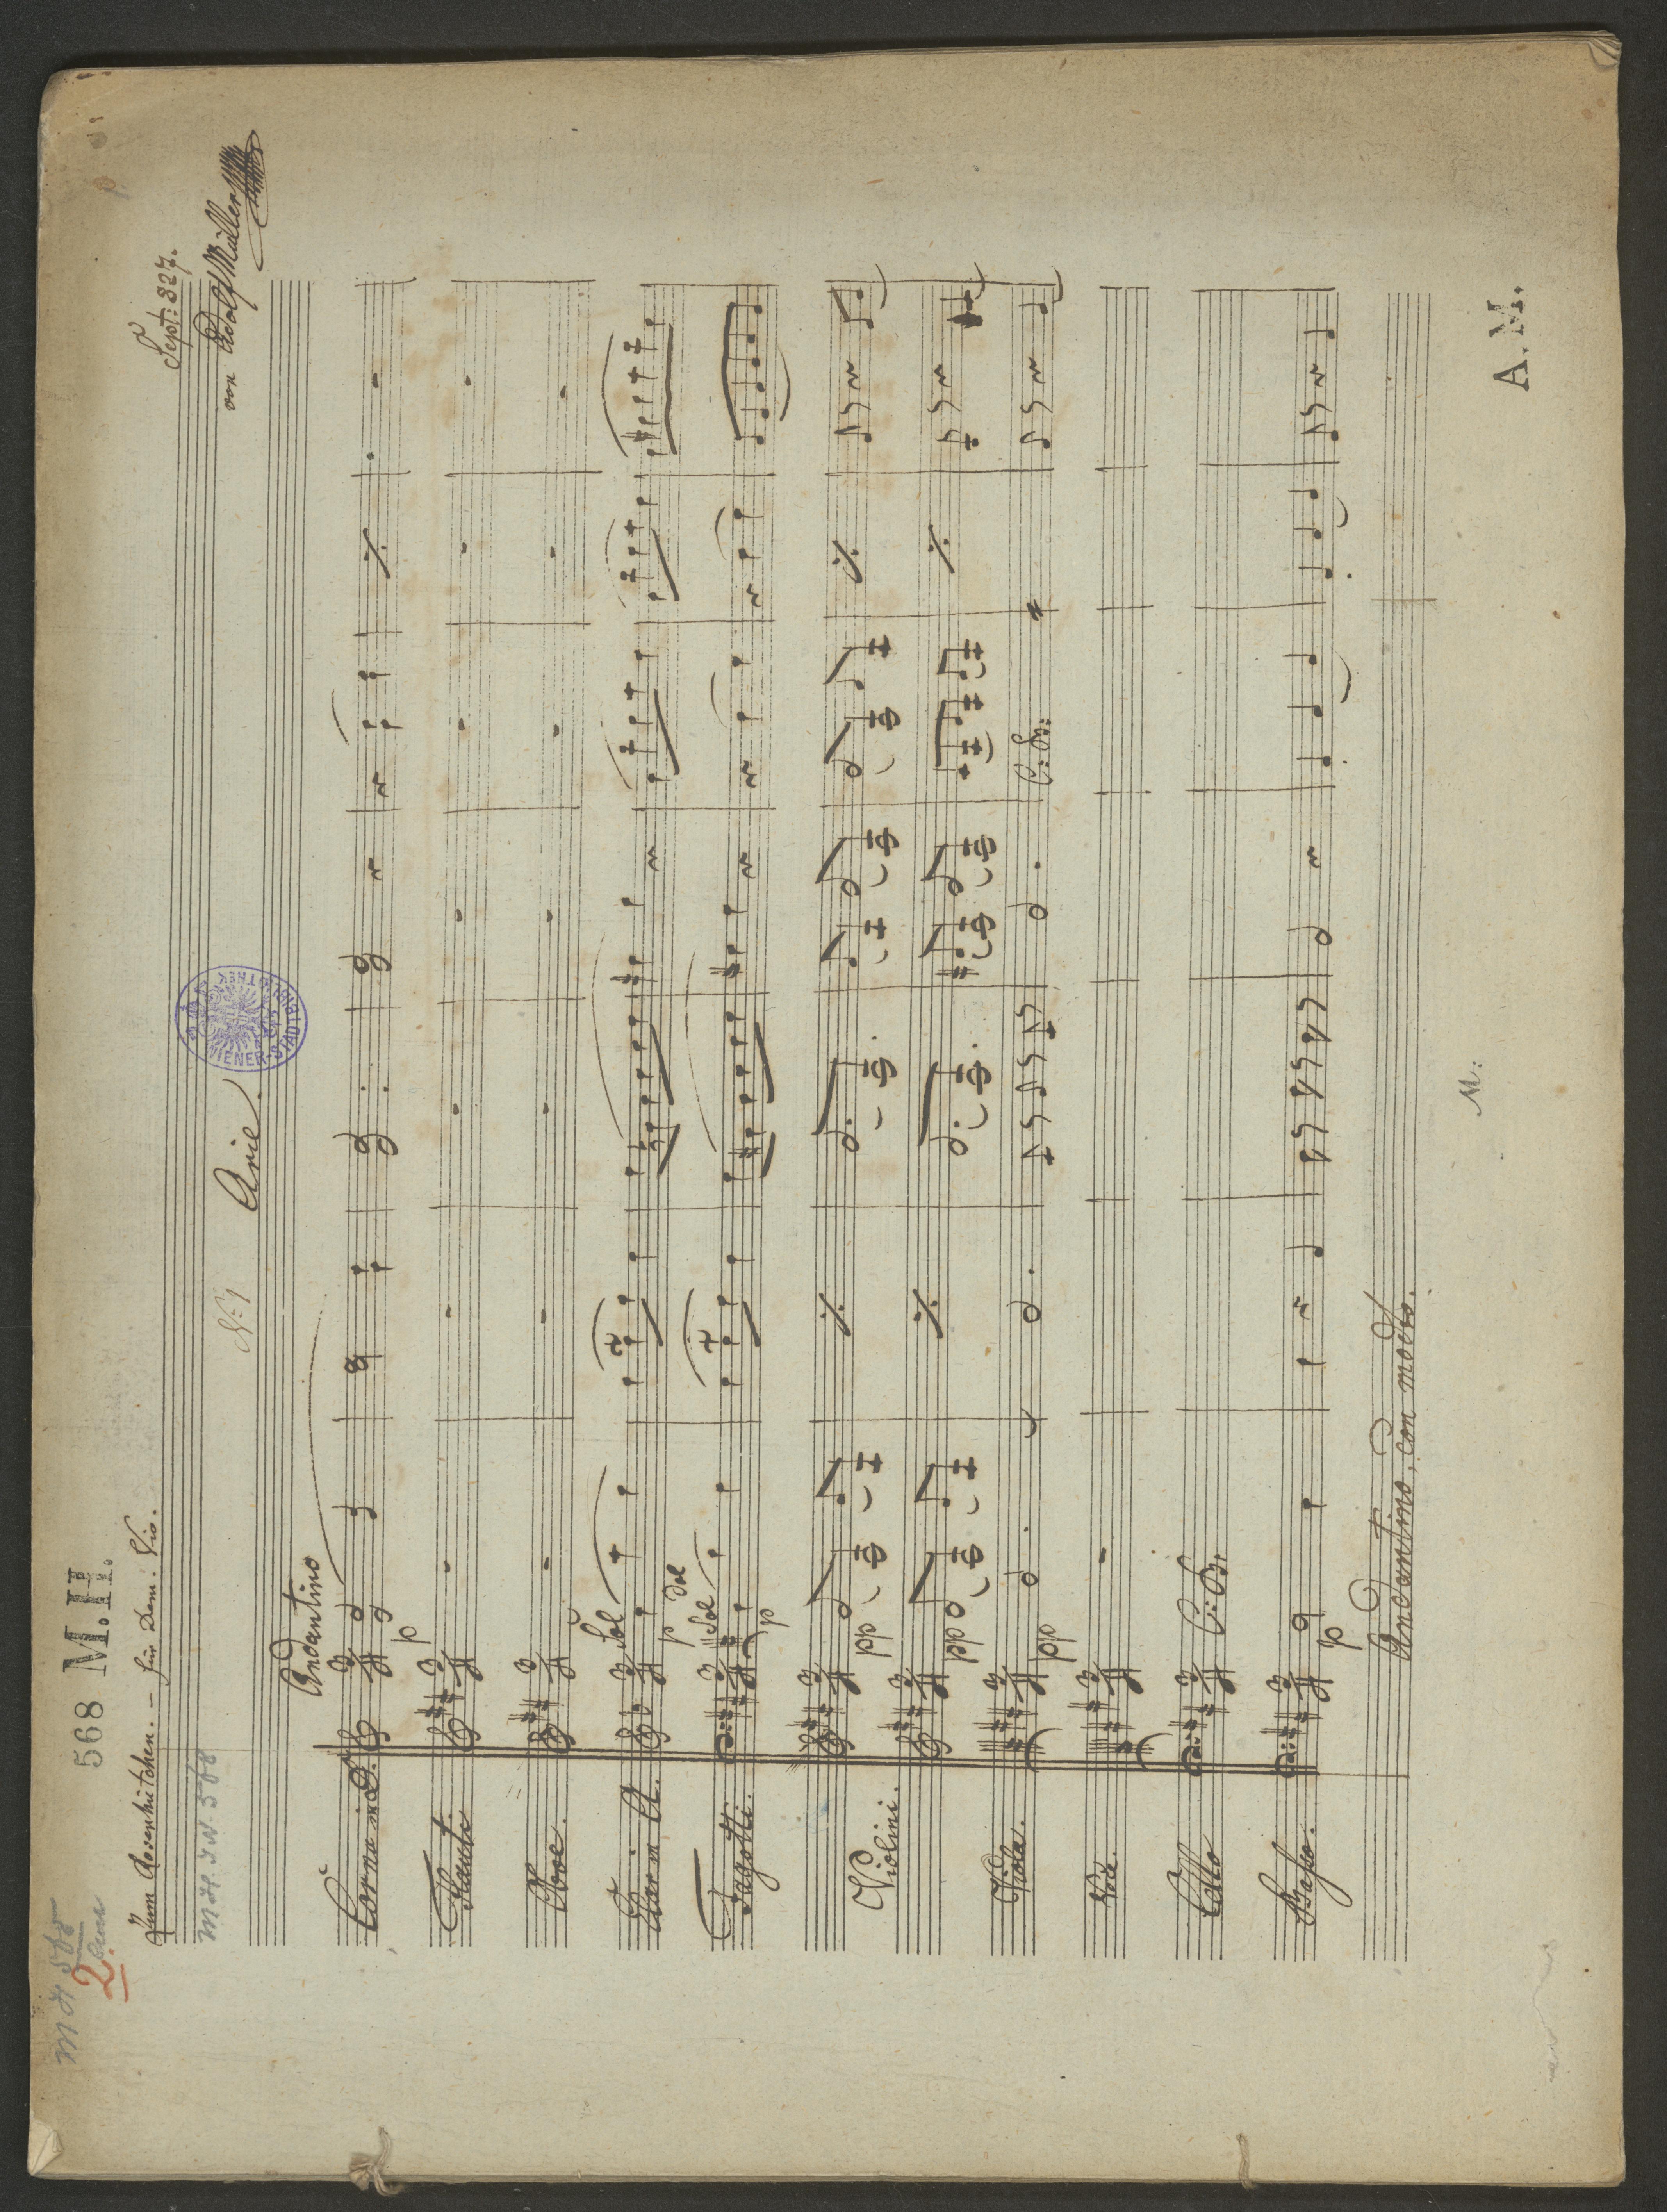 MH 568
2
568 M.H.
Zum Rosenhütchen. — für Dem: Vio.
Sept: 827.
M.H. I.N. 568
No: 1 Arie.
von Adolf Müller
WIENER STADTBIBLIOTHEK
Andantino
Corni in D. p
Flauto.
Oboe.
Clar in A. Sol p dol
Fagotti. Sol p
Violini. pp
pp
Viola. pp C: B:
Voce.
Cello C: B:
Basso. p
Andantino, con moto.
M:
A.M.